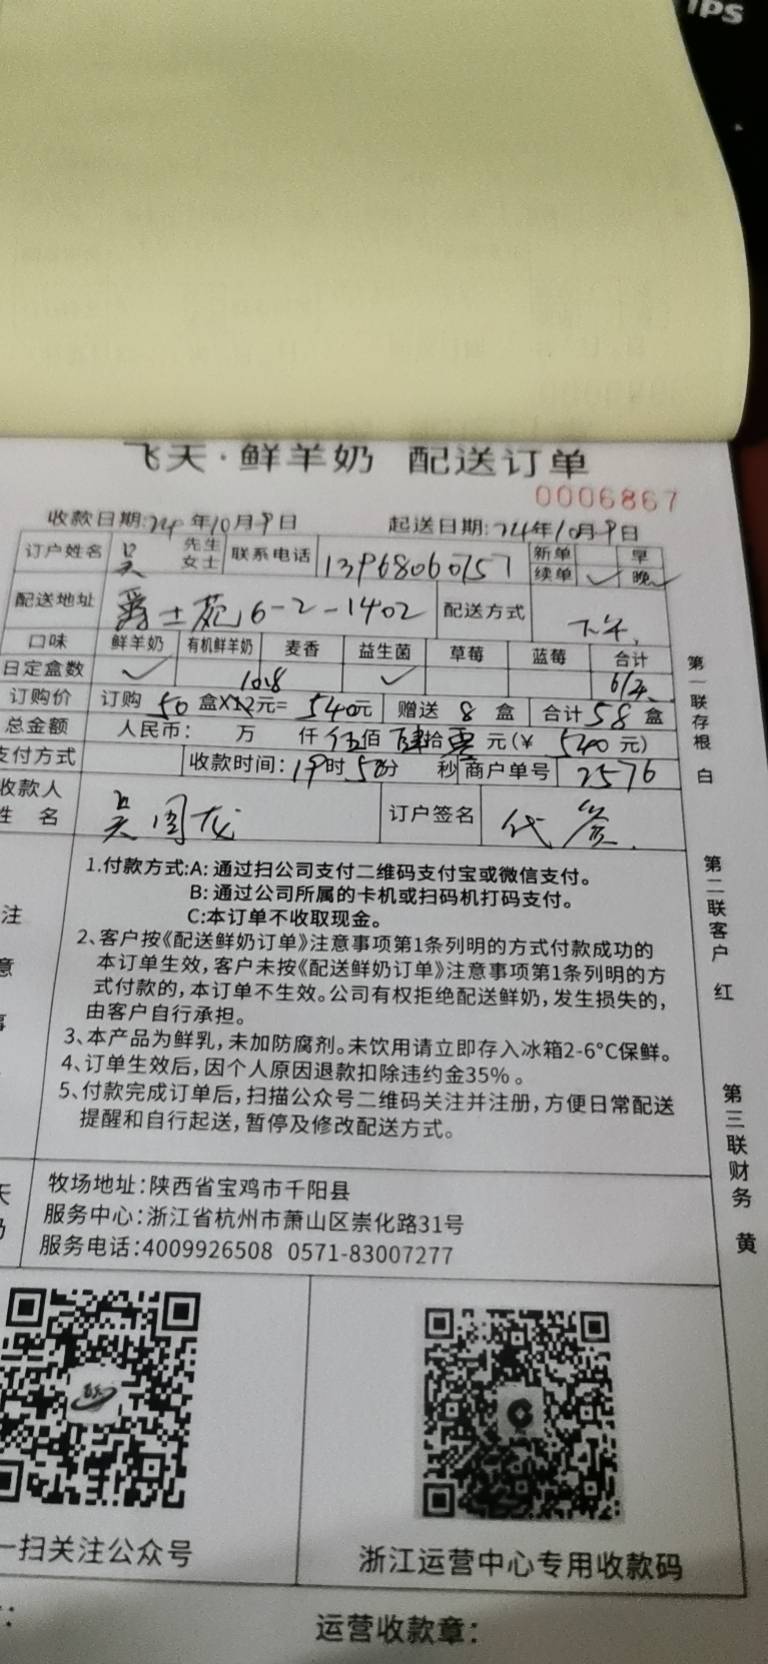 IPS
飞天·鲜羊奶 配送订单
0006867
收款日期:24年10月9日 起送日期:24年10月9日
订户姓名 吴 先生 女士 联系电话 13968060157 新单 早
续单 ✓ 晚 ✓
配送地址 爵士苑6-2-1402 配送方式 下午
口味 鲜羊奶 有机鲜羊奶 麦香 益生菌 草莓 蓝莓 合计
日定盒数 ✓ ✓
订购价 订购 50 盒X12元= 540元 赠送 8 盒 合计 58 盒
10.8
总金额 人民币: 万 仟 伍佰 肆拾 零元(¥ 540 元)
支付方式 收款时间:19时58分 秒 商户单号 2576
收款人
姓 名 吴国龙 订户签名 代签
1.付款方式:A:通过扫公司支付二维码支付宝或微信支付。
B:通过公司所属的卡机或扫码机打码支付。
C:本订单不收取现金。
2、客户按《配送鲜奶订单》注意事项第1条列明的方式付款成功的
本订单生效,客户未按《配送鲜奶订单》注意事项第1条列明的方
式付款的,本订单不生效。公司有权拒绝配送鲜奶,发生损失的,
由客户自行承担。
3、本产品为鲜乳,未加防腐剂。未饮用请立即存入冰箱2-6°C保鲜。
4、订单生效后,因个人原因退款扣除违约金35%。
5、付款完成订单后,扫描公众号二维码关注并注册,方便日常配送
提醒和自行起送,暂停及修改配送方式。
注
意
事
牧场地址:陕西省宝鸡市千阳县
服务中心:浙江省杭州市萧山区崇化路31号
服务电话:4009926508 0571-83007277
天
奶
第一联存根 白
第二联客户 红
第三联财务 黄
一扫关注公众号
浙江运营中心专用收款码
运营收款章: